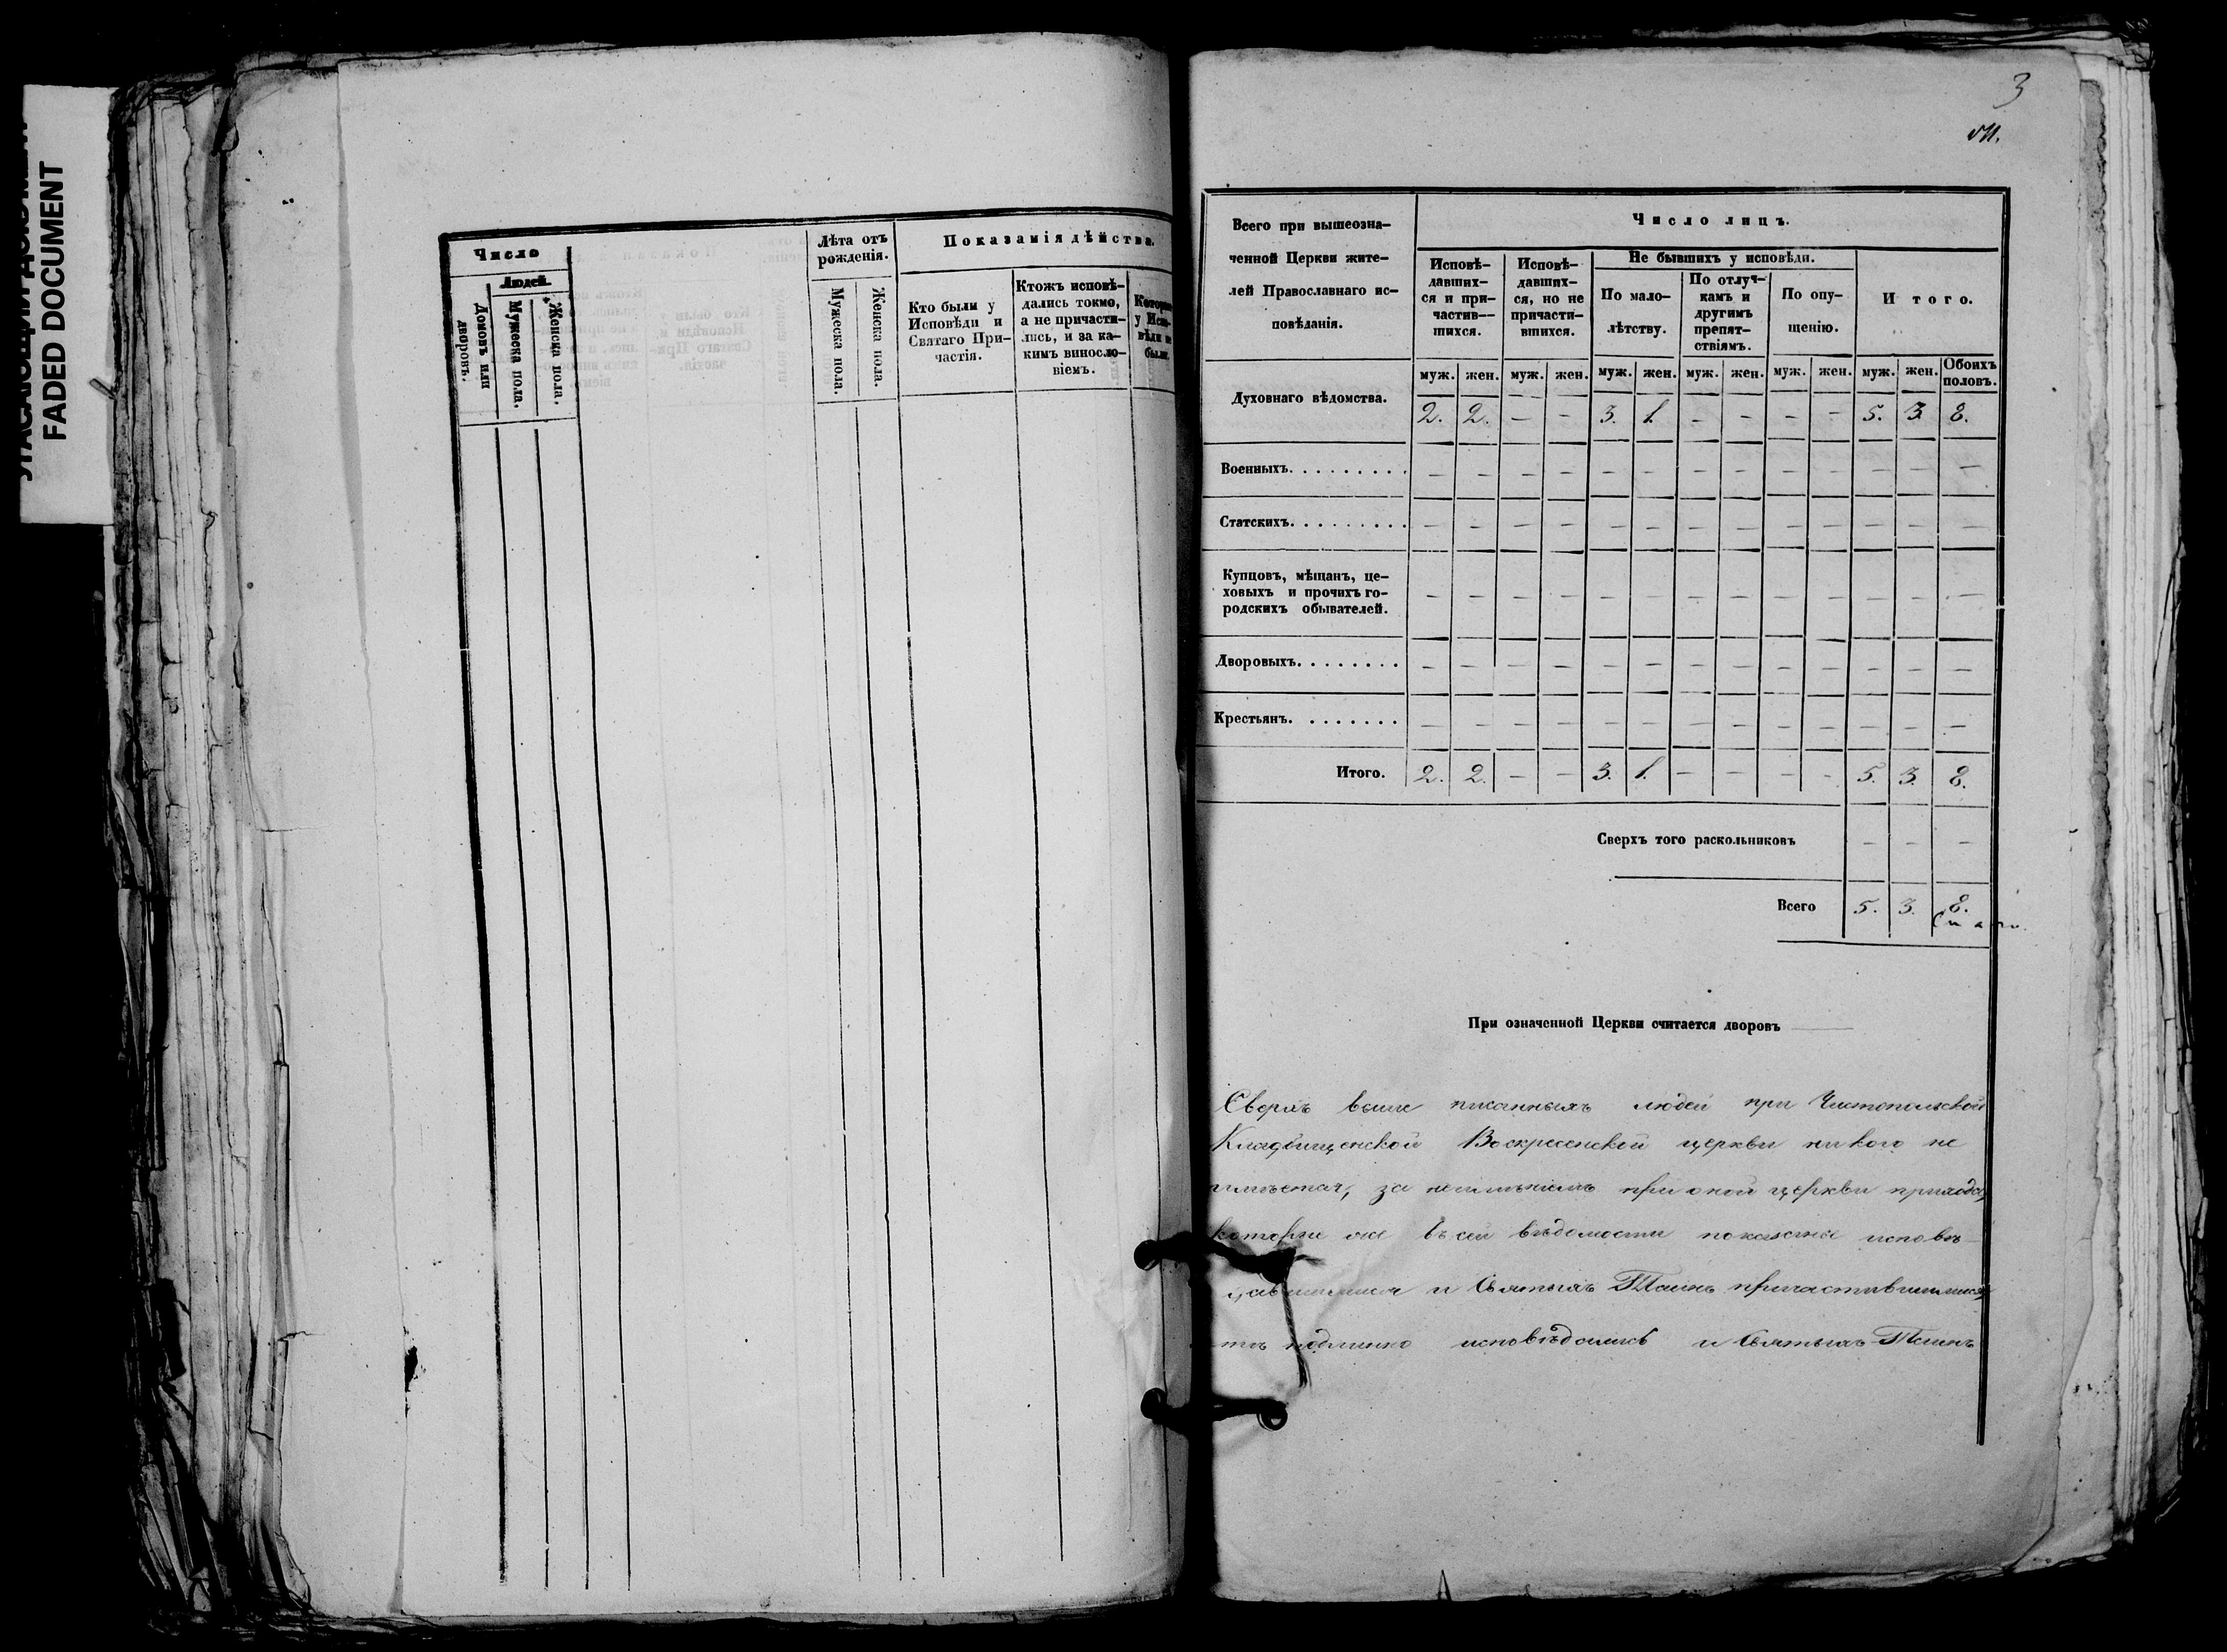 FADED DOCUMENT
Число
Людей.
Домовъ или дворовъ.
Мужеска пола.
Женска пола.
Лѣта отъ рожденія.
Мужеска пола.
Женска пола.
Показанія дѣйства.
Кто были у
Исповѣди и
Святаго При-
частія.
Ктожъ исповѣ-
дались токмо,
а не причасти-
лись, и за ка-
кимъ виносло-
віемъ.
у
были.
3
Всего при вышеозна-
ченной Церкви жите-
лей Православнаго ис-
повѣданія.
Число лицъ.
Исповѣ-
давших-
ся и при-
частив--
шихся.
Исповѣ-
давших-
ся, но не
причасти-
вшихся.
Не бывшихъ у исповѣди.
По мало-
лѣтству.
По отлуч-
камъ и
другимъ
препят-
ствіямъ.
По опу-
щенію.
Итого.
муж. жен. муж. жен. муж. жен. муж. жен. муж. жен. муж. жен. Обоихъ половъ.
Духовнаго вѣдомства. 2. 2. — — 3. 1. — — — — 5. 3. 8.
Военныхъ. . . . . . . . . — — — — — — — — — — — — —
Статскихъ. . . . . . . . . — — — — — — — — — — — — —
Купцовъ, мѣщанъ, це-
ховыхъ и прочихъ го-
родскихъ обывателей. — — — — — — — — — — — — —
Дворовыхъ. . . . . . . . — — — — — — — — — — — — —
Крестьянъ. . . . . . . . — — — — — — — — — — — — —
Итого. 2. 2. — — 3. 1. — — — — 5. 3. 8.
Сверхъ того раскольниковъ — — —
Всего 5. 3. 8.
При означенной Церкви считается дворовъ ——
Сверхъ выше писанныхъ людей при Чистопольской
Кладбищенской Воскресенской церкви никого не
имѣется, за неимѣніемъ при оной церкви прихода,
которые же въ сей вѣдомости показаны исповѣ-
давшимися и Святыхъ Таинъ причастившимися,
тѣ подлинно исповѣдались и Святыхъ Таинъ